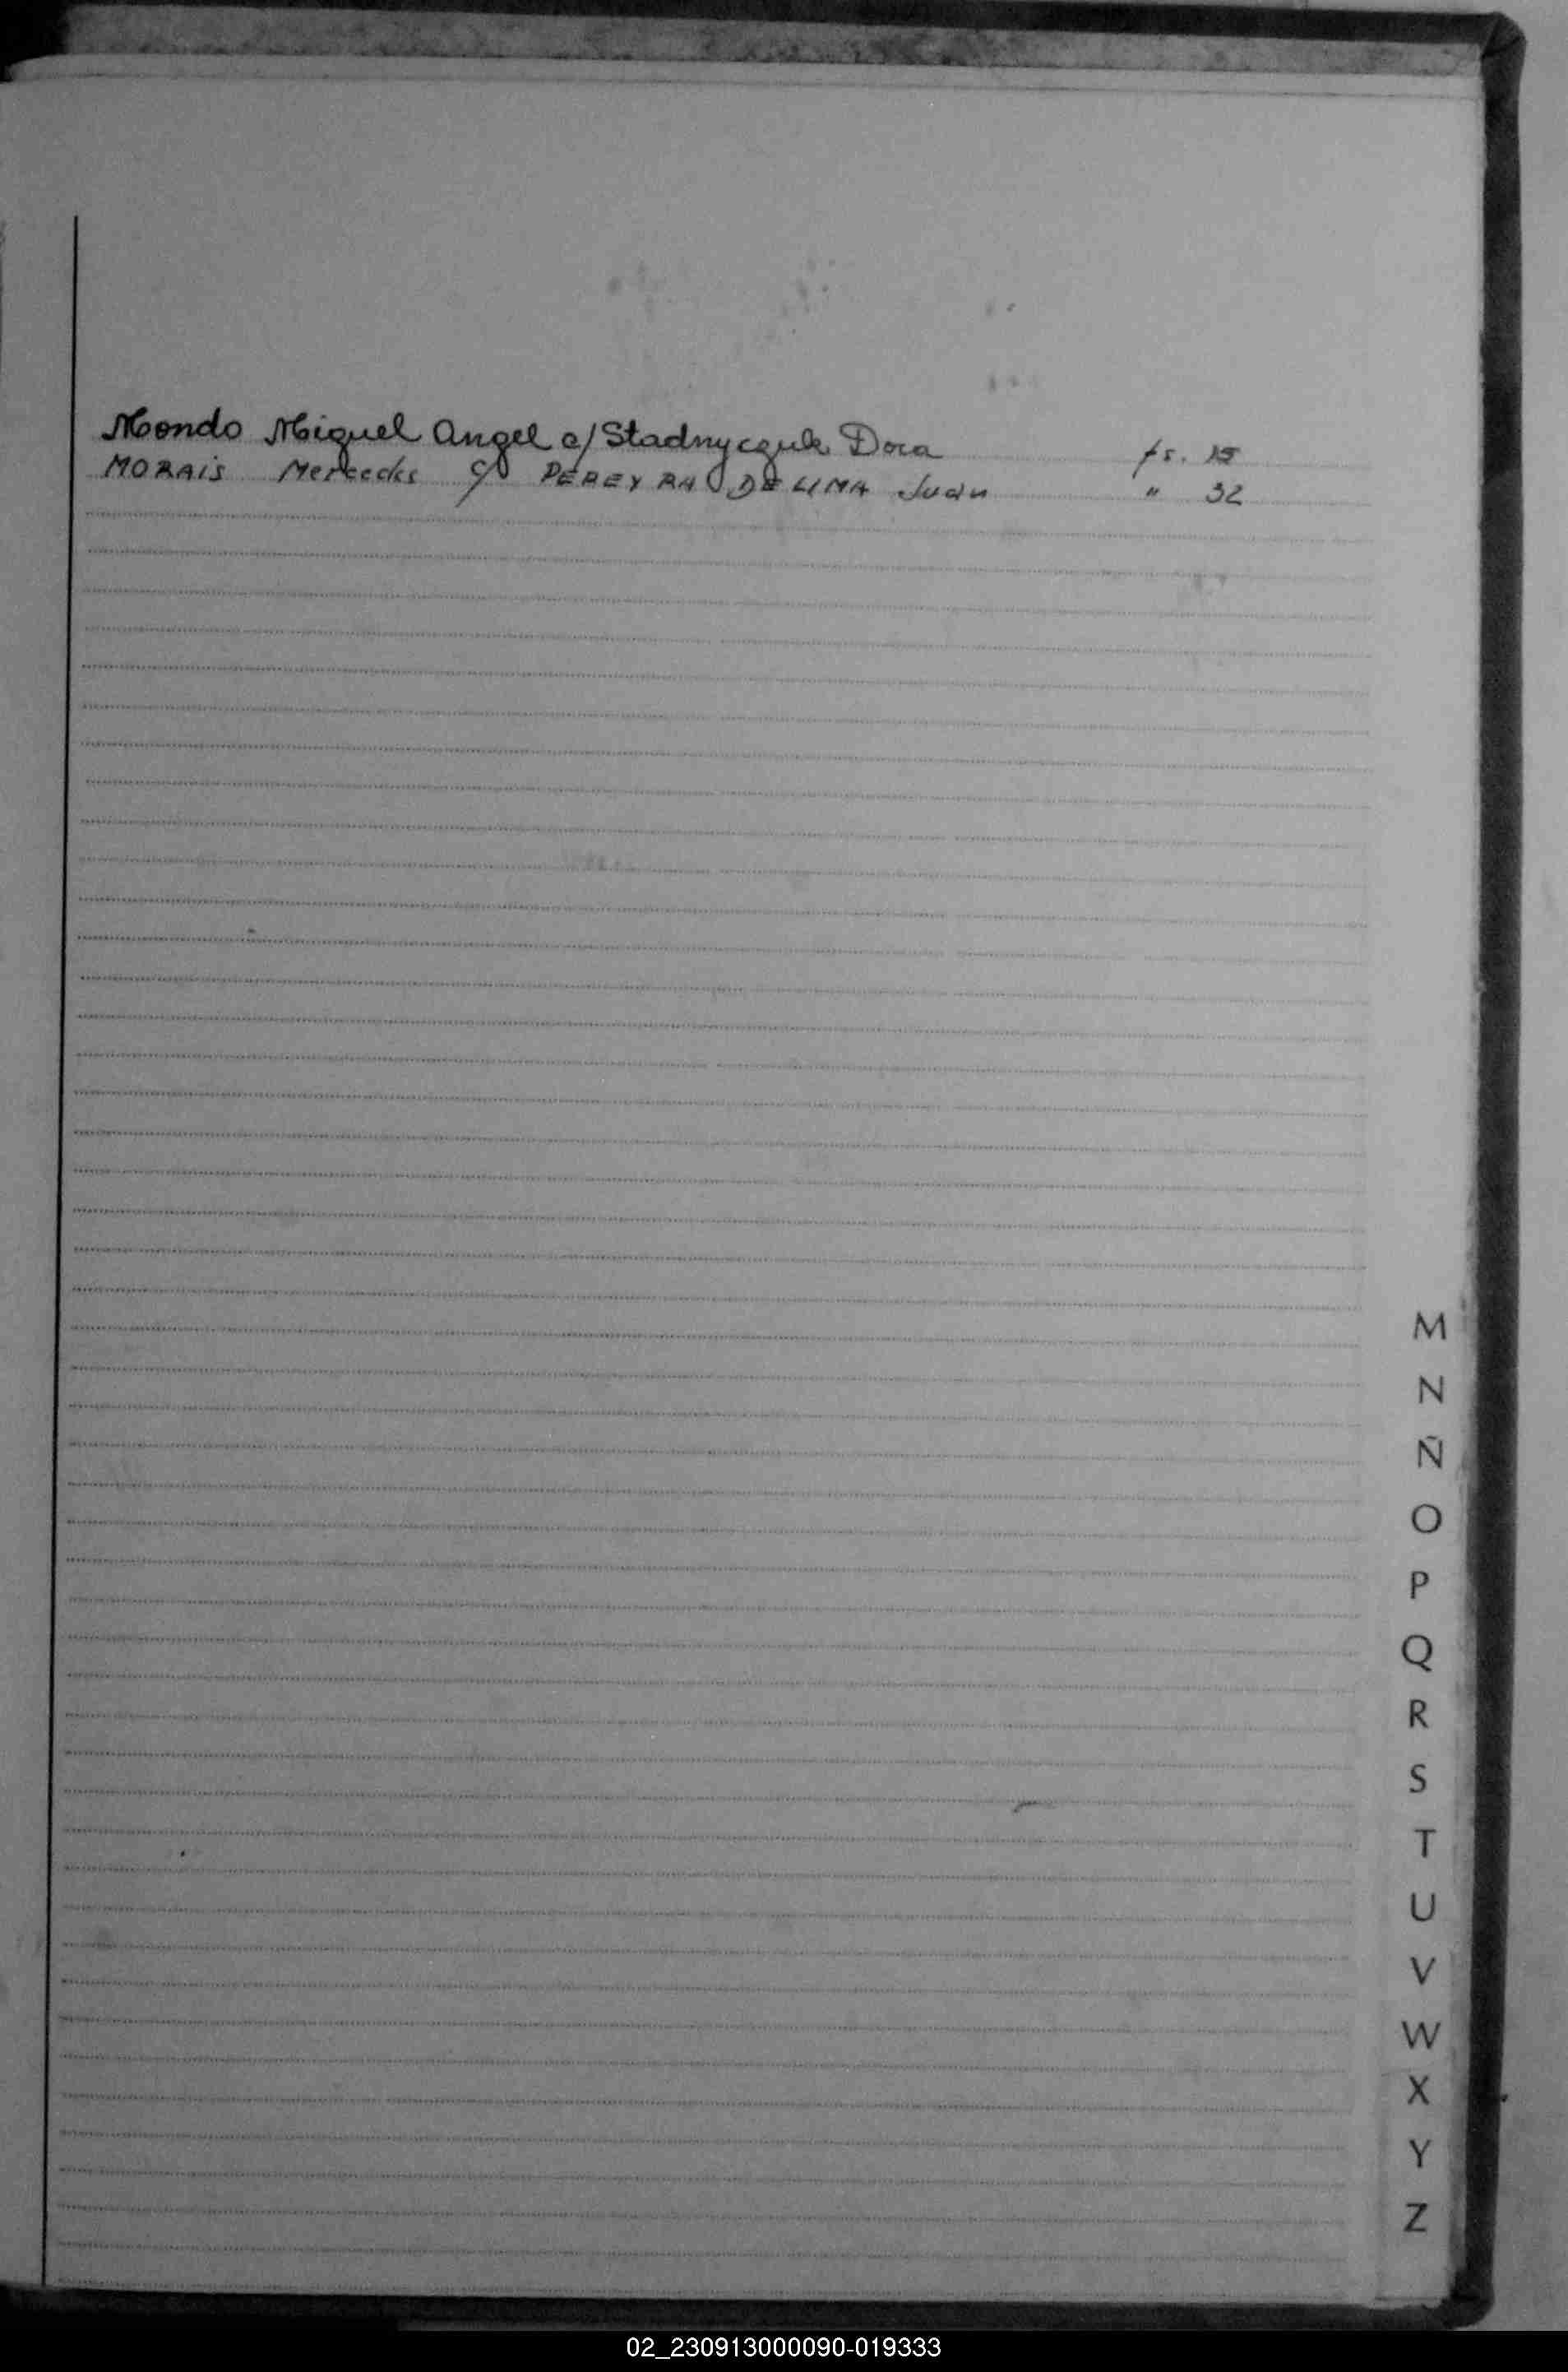 Mondo Miguel Angel c/ Stadnyczuk Dora fs. 15
MORAis Mercedes c/ PEREYRA DE LIMA Juan " 32
M
N
Ñ
O
P
Q
R
S
T
U
V
W
X
Y
Z
02_230913000090-019333